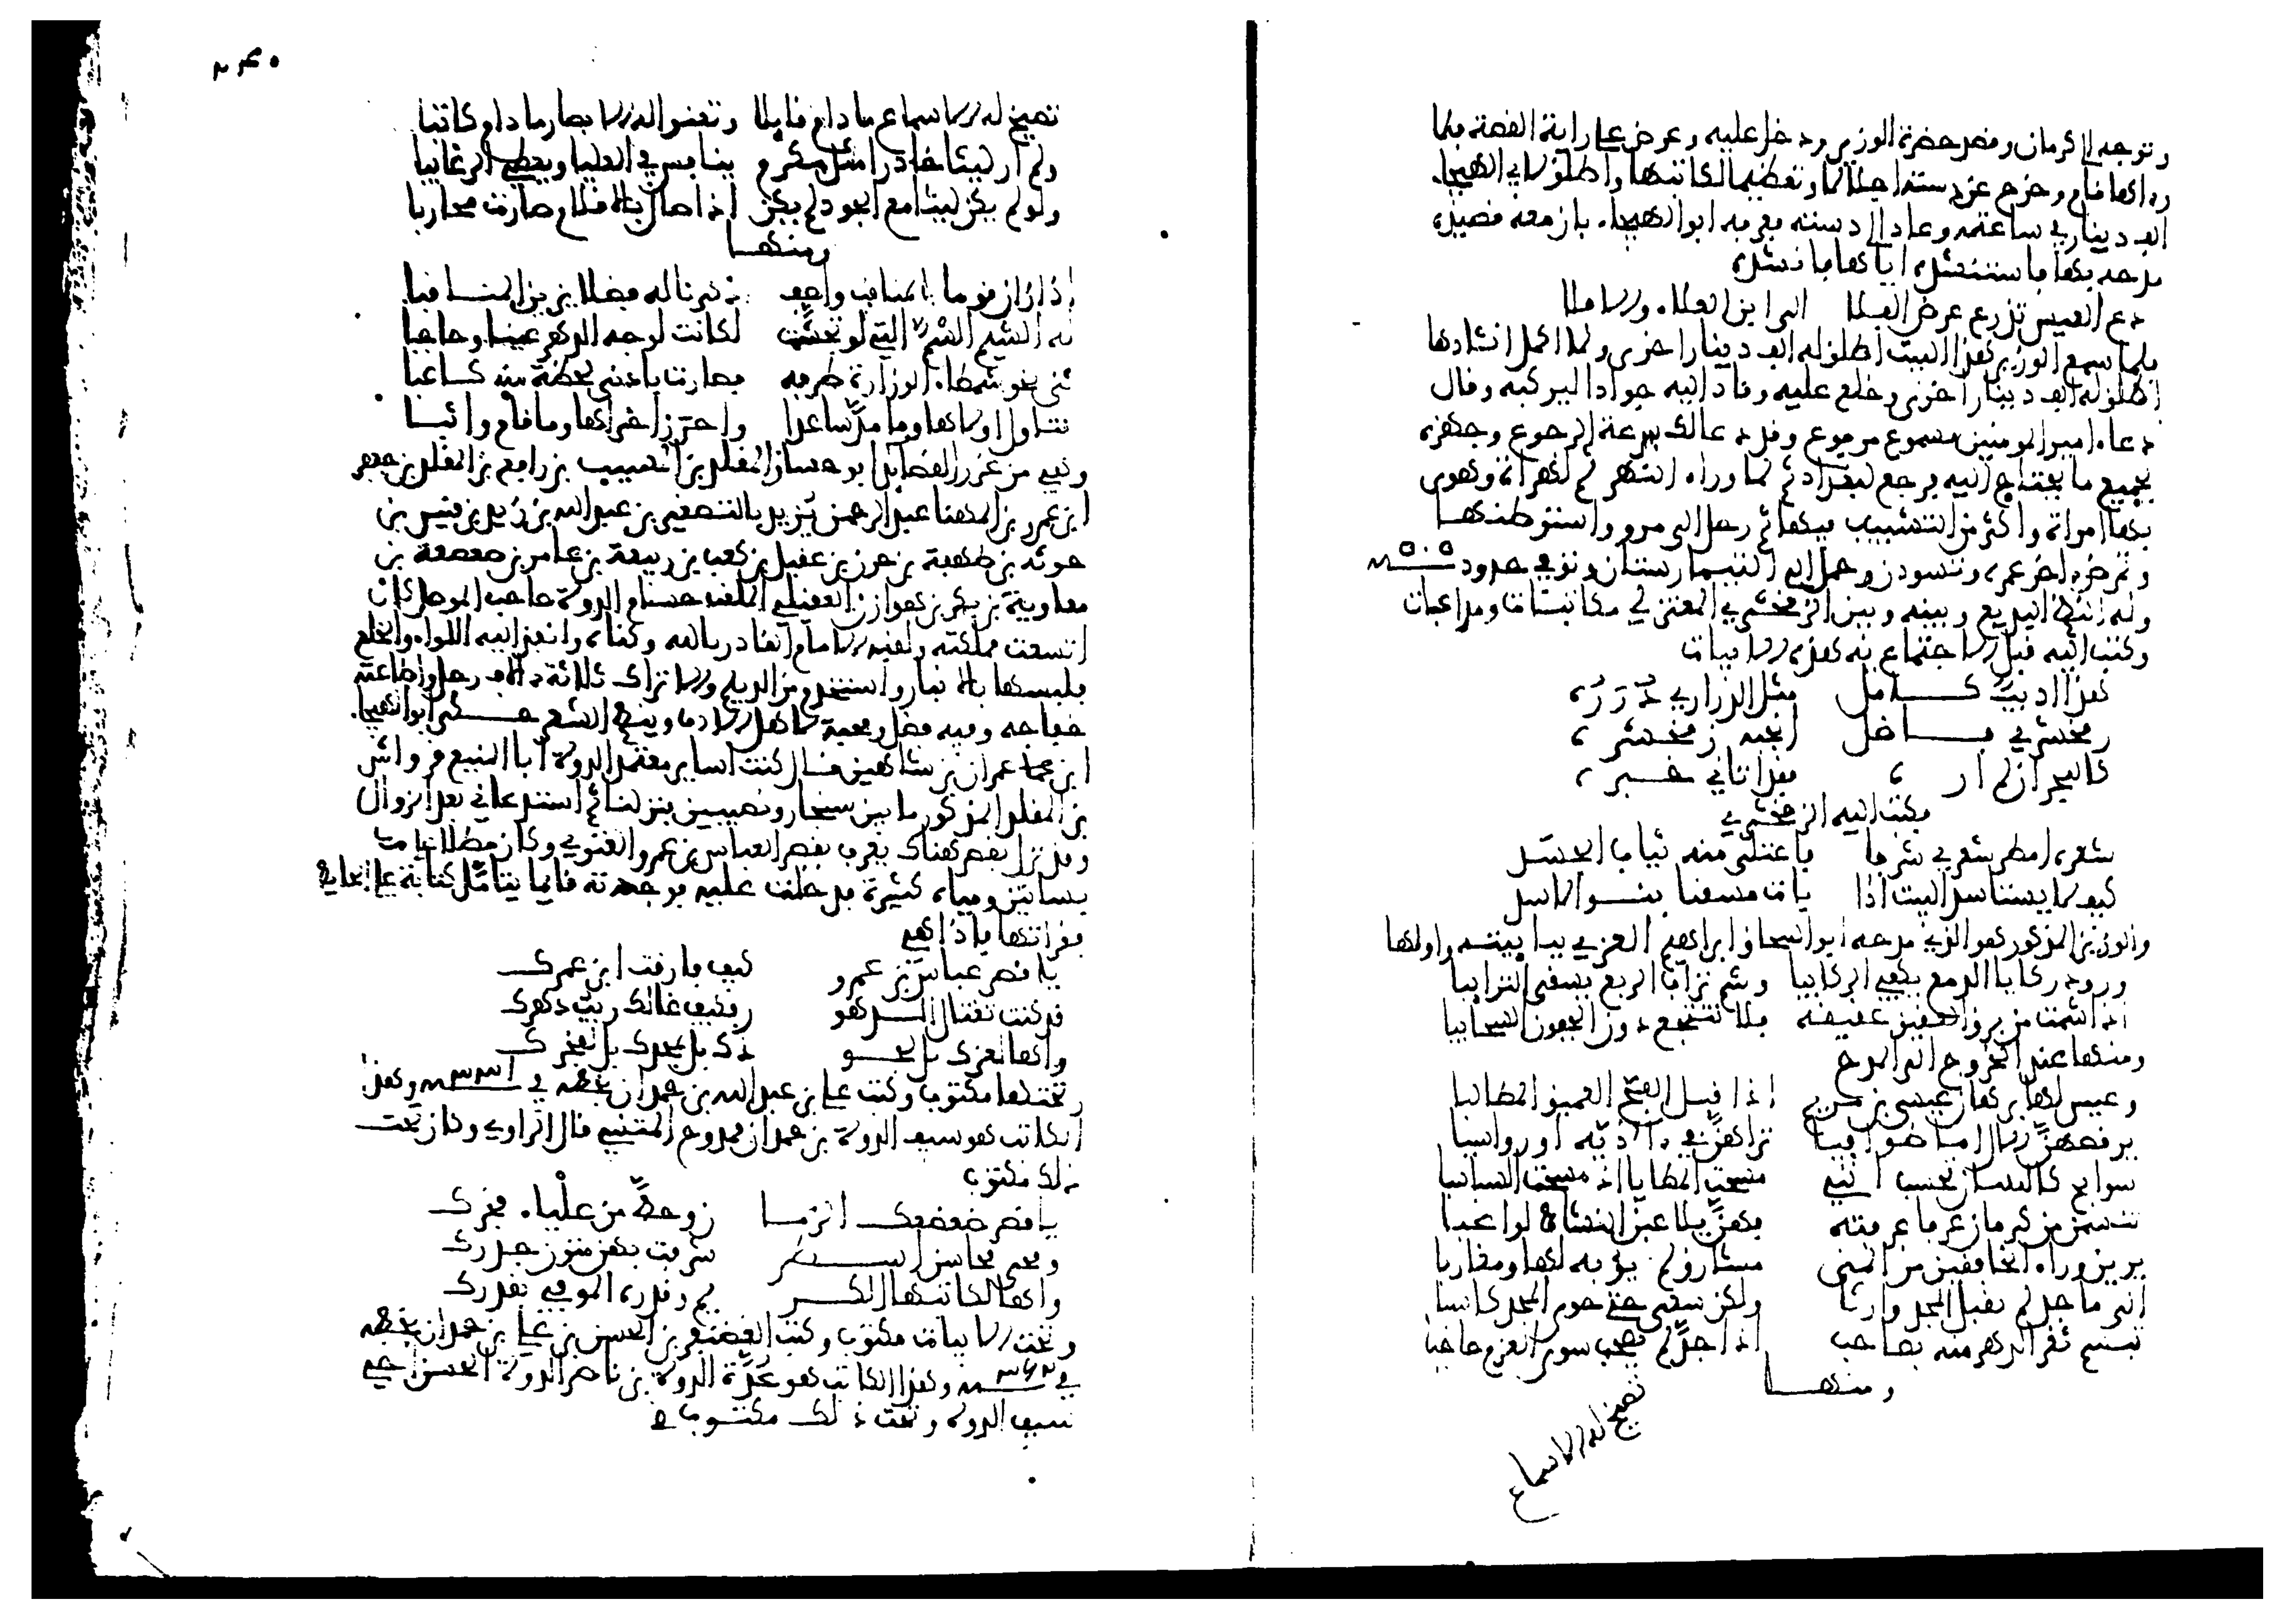 وتوجه الى كرمان وقصد حضرة الوزير ودخل عليه وعرض على رايه القصة فلما
رءاها قام وخرج عن دسته اجلالا وتعظيما لكاتبها واطلق لابي الهيجاء
الف دينار في ساعته وعاد الى دسته فعرفه ابو الهيجاء بان معه قصيدة
مدحه بها فاستنشده اياها فانشده
دع العيس تذرع عرض الفلا الى ابن العلاء والا فلا
فلما سمع الوزير هذا البيت اطلق له الف دينار اخرى ولما اكمل انشادها
اطلق له الف دينار اخرى وخلع عليه وقاد اليه جوادا ليركبه وقال
دعاء امير المومنين مسموع مرفوع وقد دعا لك بسرعة الرجوع وجهزه
بجميع ما يحتاج اليه فرجع لبغداد ثم لما وراء النهر ثم لهراة وهوى
بها امراة واكثر من التشبيب فيها ثم رحل الى مرو واستوطنها
ومرض اخر عمره وتسودن وحمل الى البيمارستان وتوفي حدود ٥٠٥
وله النظم البديع وبينه وبين الزمخشري المعتزلي مكاتبات ومداعبات
وكتب اليه قبل الاجتماع به هذه الابيات
هذا اديب كامل مثل الدراري درره
زمخشري فاضل انجبه زمخشره
كالبحر ان لم اره فقد اتاني خبره
فكتب اليه الزمخشري
شعره امطر شعري شرفا فاعتلى منه ثياب الحسد
كيف لا يستاسد البيت اذا بات مسقيا بنوء الاسد
والوزير المذكور هو الذي مدحه ابو اسحاق ابراهيم الغزي ببابيته واولها
ورود ركايا الدمع يكفي الركايبا وشم تراب الربع يشفي الترايبا
اذا شمت من برق العقيق عقيقة فلا تنتجع دون الجفون السحايبا
ومنها عند الخروج الى المدح
وعيس لها برهان عيسى بن مريم اذا قتل الفج العميق المطالبا
تنسمن من كرمان عرفا عرفنه فهن يلاعبن النشاط لواعبا
يرين وراء الخافقين من المنى مشارق لم يؤبه لها ومغاربا
الى ماجد لم يقبل المجد وارثا ولكن سعى حتى حوى المجد كاسبا
تبسم ثغر الدهر منه بصاحب اذا جد لم يصحب سوى العزم صاحبا
ومنها
تصيخ له الاسماع
تصيخ له الاسماع ما دام قايلا وتعنو له الابصار ما دام كاتبا
ولم ار ليثا خادرا مثل مكرم ينافس في العليا ويعطي الرغايبا
ولو لم يكن ليثا مع الجود لم يكن اذا صال بالاقلام صارت مخالبا
ومنها
اذا زان قوما بالمناقب واصف ذكرنا له فضلا يزين المناقبا
له الشيم الشم التي لو تجسمت لكانت لوجه الدهر عينا وحاجبا
ثنى نحو شمطاء الوزارة طرفه فصارت بادنى لحظة منه كاعبا
تناول اولاها وما مد ساعدا واحرز اخراها وما قام واثبا
وهي من غرر القصايد ابو حسان المقلد بن المسيب بن رافع بن المقلد بن جعفر
ابن عمرو بن المهنا عبد الرحمن بزيد بالتصغير بن عبد الله بن زيد بن قيس بن
جوثة بن طهفة بن حزن بن عقيل بن كعب بن ربيعة بن عامر بن صعصعة بن
معاوية بن بكر بن هوازن العقيلي الملقب حسام الدولة صاحب الموصل كان
اتسعت مملكته ولقبه الامام القادر بالله وكناه وانفذ اليه اللواء والخلع
فلبسها بالانبار واستخدم من الديلم والاتراك ثلاثة الاف رجل واطاعته
خفاجه وفيه فضل ومحبة لاهل الادب وينظم الشعر حكى ابو الهيجاء
ابن عمران بن شاهين قال كنت اساير معتمد الدولة ابا المنيع قرواش
بن المقلد المذكور ما بين سنجار ونصيبين فنزلنا ثم استدعاني بعد الزوال
وقد نزل بقصر هناك يعرف بقصر العباس بن عمرو الغنوي وكان مطلا على
بساتين ومياه كثيرة فدخلت عليه فوجدته قايما يتامل كتابة على الحايط
فقراتها فاذا هي
يا قصر عباس بن عمرو كيف فارقت ابن عمرك
قد كنت تغتال الدهو ر فكيف غالك ريب دهرك
واها لعزك بل لجو دك بل لمجدك بل لفخرك
وتحتها مكتوب وكتب علي بن عبد الله بن حمدان بخطه في ٣٣١ وهذا
الكاتب هو سيف الدولة بن حمدان ممدوح المتنبي قال الراوي وكان تحت
ذلك مكتوب
يا قصر ضعضعك الزما ن وحط من علياء فخرك
ومحا محاسن اسطر شرفت بهن متون جدرك
واها لكاتبها الكر يم وقدره الموفي بقدرك
وتحت الابيات مكتوب وكتب الغضنفر بن الحسن بن علي بن حمدان بخطه
في ٣٦٢ وهذا الكاتب هو عدة الدولة بن ناصر الدولة الحسن اخي
سيف الدولة وتحت ذلك مكتوب